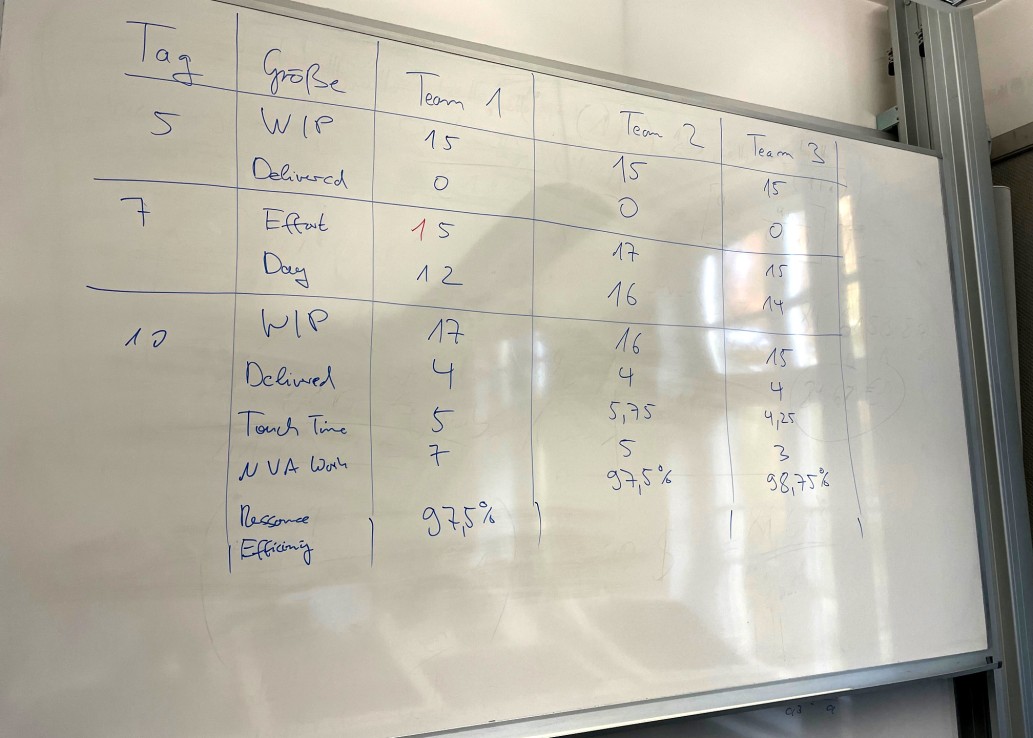 Tag Größe Team 1 Team 2 Team 3
5 WIP 15 15 15
Delivered 0 0 0
7 Effort 15 17 15
Day 12 16 14
10 WIP 17 16 15
Delivred 4 4 4
Touch Time 5 5,75 4,25
NVA Work 7 5 3
Ressource 97,5% 97,5% 98,75%
Efficiency